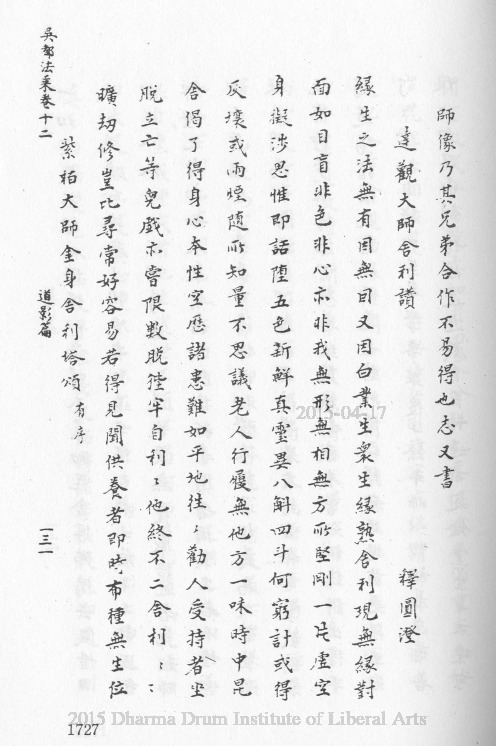 師像乃其兄弟合作不易得也志又書
達觀大師舍利讚 釋圓澄
緣生之法無有因無因又因白業生衆生緣熟舍利現無緣對
面如目盲非色非心亦非我無形無相無方所堅剛一片虛空
身擬涉思惟即話墮五色新鮮真靈異八斛四斗何窮計或得
灰壞或雨曀隨所知量不思議老人行履無他方一味時中毘
舍偈了得身心本性空歷諸患難如平地往〻勸人受持者坐
脫立亡等兒戲亦嘗限數脫徃牢自利〻他終不二舍利〻〻
曠劫修豈比尋常好容易若得見聞供養者即時布種無生位
紫柏大師金身舍利塔頌 有序
吳都法乘卷十二 道影篇 一三一
1727
2015-04-17
2015 Dharma Drum Institute of Liberal Arts